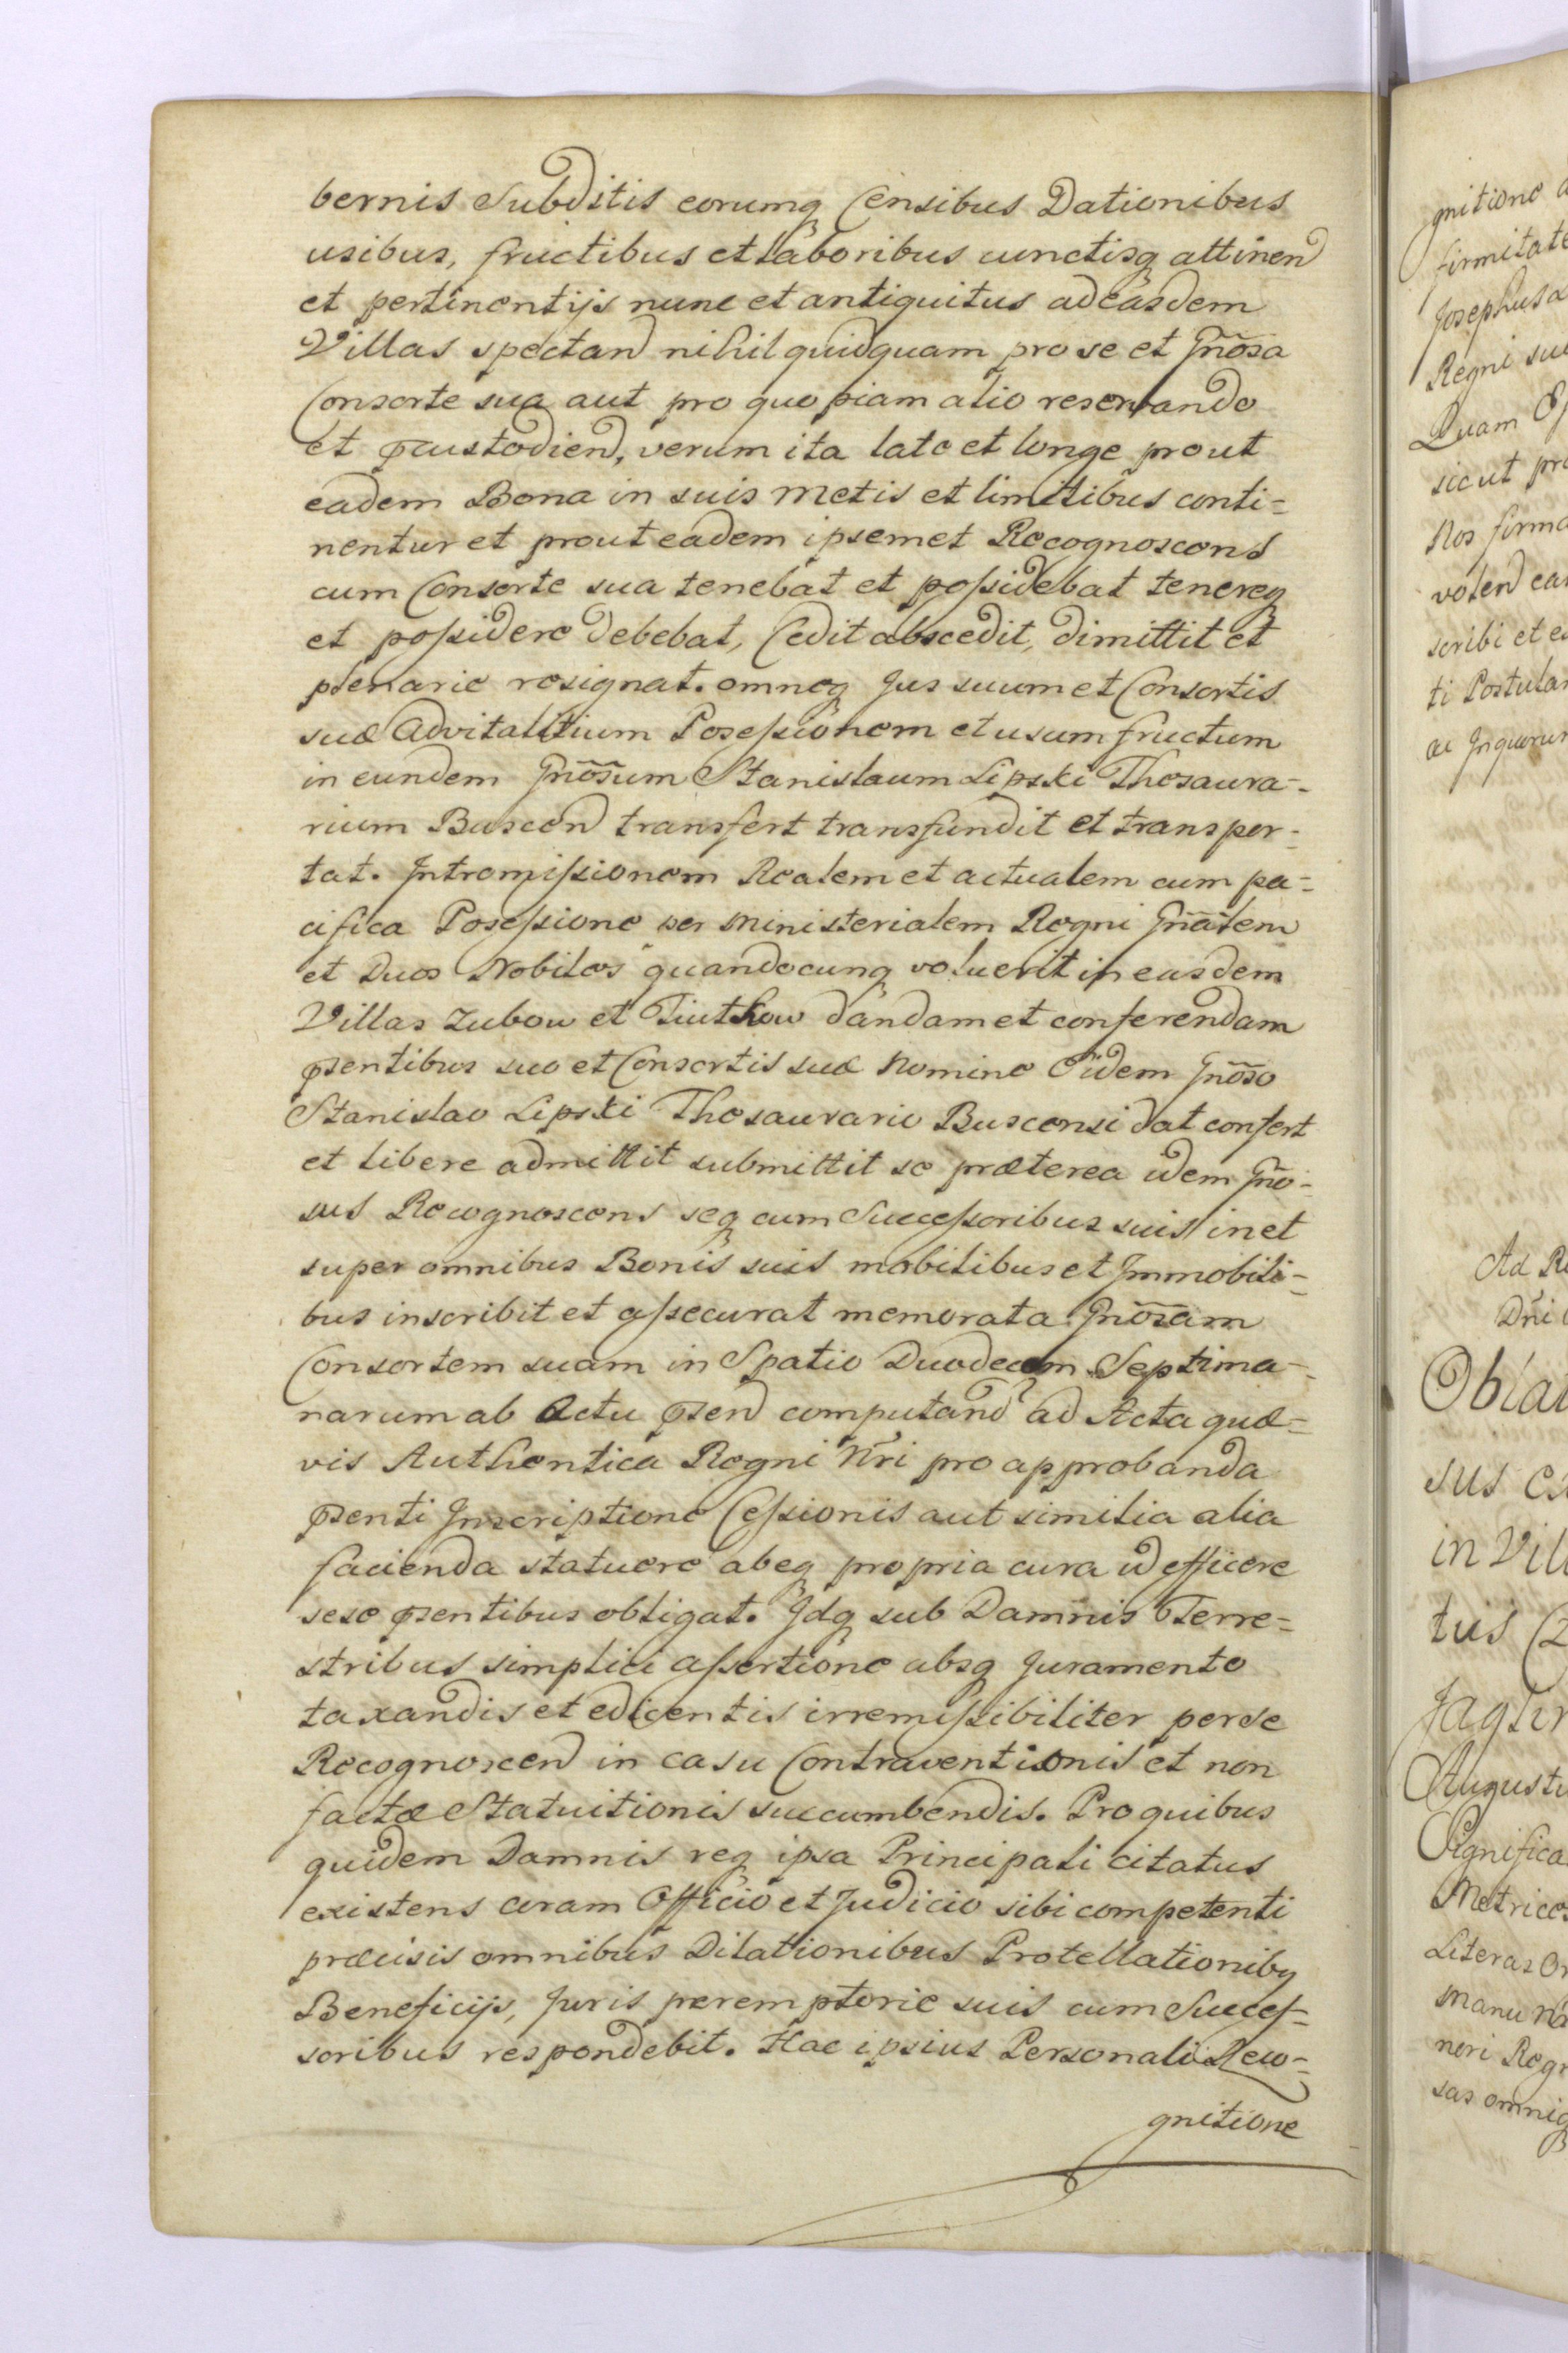 bernis Subditis eorumq Censibus Dationibus
usibus, fructibus et laboribus cunctisq attinen
et pertinentijs nunc et antiquitus ad easdem
Villas spectan nihil quidquam pro se et Gnosa
Consorte sua aut pro quopiam alio reservando
et custodien, verum ita late et longe prout
eadem Bona in suis metis et limitibus conti-
nentur et prout eadem ipsemet Recognoscens
cum Consorte sua tenebat et possidebat tenereq
et possidere debebat, Cedit abscedit, dimittit et
plenarie resignat. omneq Jus suum et Consortis
suæ Advitalitium Posessionem et usumfructum
in eundem Gnosum Stanislaum Lipski Thesaura-
rium Buscen transfert transfundit et transpor-
tat. Intromissionem Realem et actualem cum pa-
cifica Posessione per Ministerialem Regni Gnalem
et Duos Nobiles quandocunq voluerit in easdem
Villas Zubow et Tiutkow dandam et conferendam
psentibus suo et Consortis suæ Nomine Eidem Gnoso
Stanislao Lipski Thesaurario Buscensi dat confert
et libere admittit submittit se præterea idem Gno-
sus Recognoscens seq cum Successoribus suis in et
super omnibus Bonis suis mobilibus et Immobili-
bus inscribit et assecurat memorata Gnosam
Consortem suam in Spatio Duodecem Septima-
narum ab Actu psen computan ad Acta quæ-
vis Authentica Regni Nri pro approbanda
psenti Inscriptione Cessionis aut similia alia
facienda statuere abeq propria cura id efficere
sese psentibus obligat. Idq sub Damnis Terre-
stribus simplici assertione absq Juramento
taxandis et edicentis irremissibiliter per se
Recognoscen in casu Contraventionis et non
factæ Statuitionis succumbendis. Pro quibus
quidem Damnis req ipsa Principali citatus
existens coram Officio et Judicio sibi competenti
præcisis omnibus Dilationibus Protellationibq
Beneficijs, Juris peremptorie suis cum Succes-
soribus respondebit. Hac ipsius Personali Reco-
gnitione
gnitione
firmitate
Josephus
Regni
Quam
sicut
Nos
volen
scribi et
ti Postula
ac Inquorum
Ad
Dni
Oblat
sus
in Vil
tus
Augustu
Significa
Metrices
Literas Or
manu
neri Reg
sas omniq